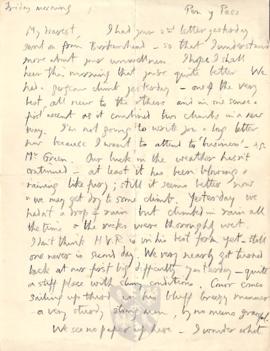 Friday morning Pen y Pass
My dearest, I had your 2nd letter yesterday
sent on from Birkenhead - so that I understand
more about your unwellness. I hope I shall
hear this morning that you're quite better. We
had a gorgeous climb yesterday - one of the very
best, all new to the others and in one sense a
first ascent as it combined two climbs in a new
way. I'm not going to write you a long letter
now because I want to attend to 'business' -
Mr Green. Our luck in the weather hasn't
continued - at least it has been blowing &
raining like fury; still it seems better now
& we may get dry to some climb. Yesterday we
hadn't a drop of rain but climbed in rain all
the time & the rocks were thoroughly wet.
I don't think H.V.R. is in his best form yet - still
one never is second day. We very nearly got turned
back at our first big difficulty yesterday - quite
a stiff place with any conditions. Conor comes
sailing up third in his bluff breezy manner
- a very sturdy strong man, by no means graceful.
We see no papers up here - I wonder what